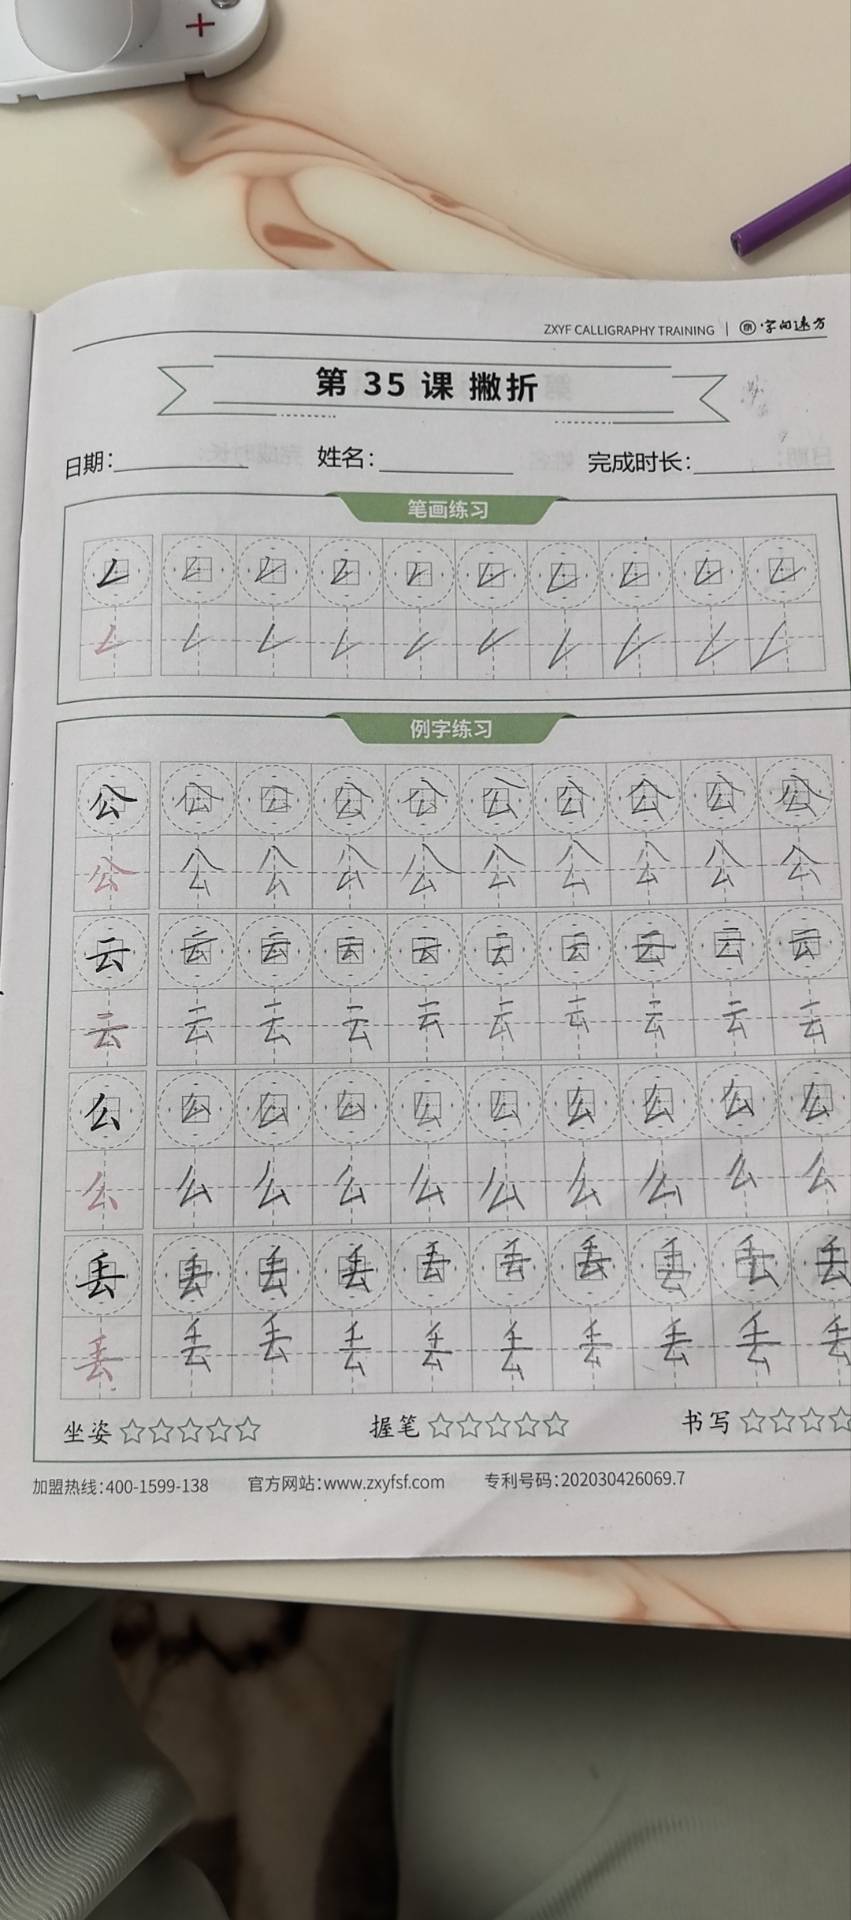 ZXYF CALLIGRAPHY TRAINING | 字间远方
第 35 课 撇折
日期: 姓名: 完成时长:
笔画练习
例字练习
公 公 公 公 公 公 公 公 公 公
公 公 公 公 公 公 公 公 公 公
云 云 云 云 云 云 云 云 云 云
云 云 云 云 云 云 云 云 云 云
么 么 么 么 么 么 么 么 么 么
么 么 么 么 么 么 么 么 么 么
丢 丢 丢 丢 丢 丢 丢 丢 丢 丢
丢 丢 丢 丢 丢 丢 丢 丢 丢 丢
坐姿 ☆☆☆☆☆ 握笔 ☆☆☆☆☆ 书写 ☆☆☆☆
加盟热线:400-1599-138 官方网站:www.zxyfsf.com 专利号码:202030426069.7